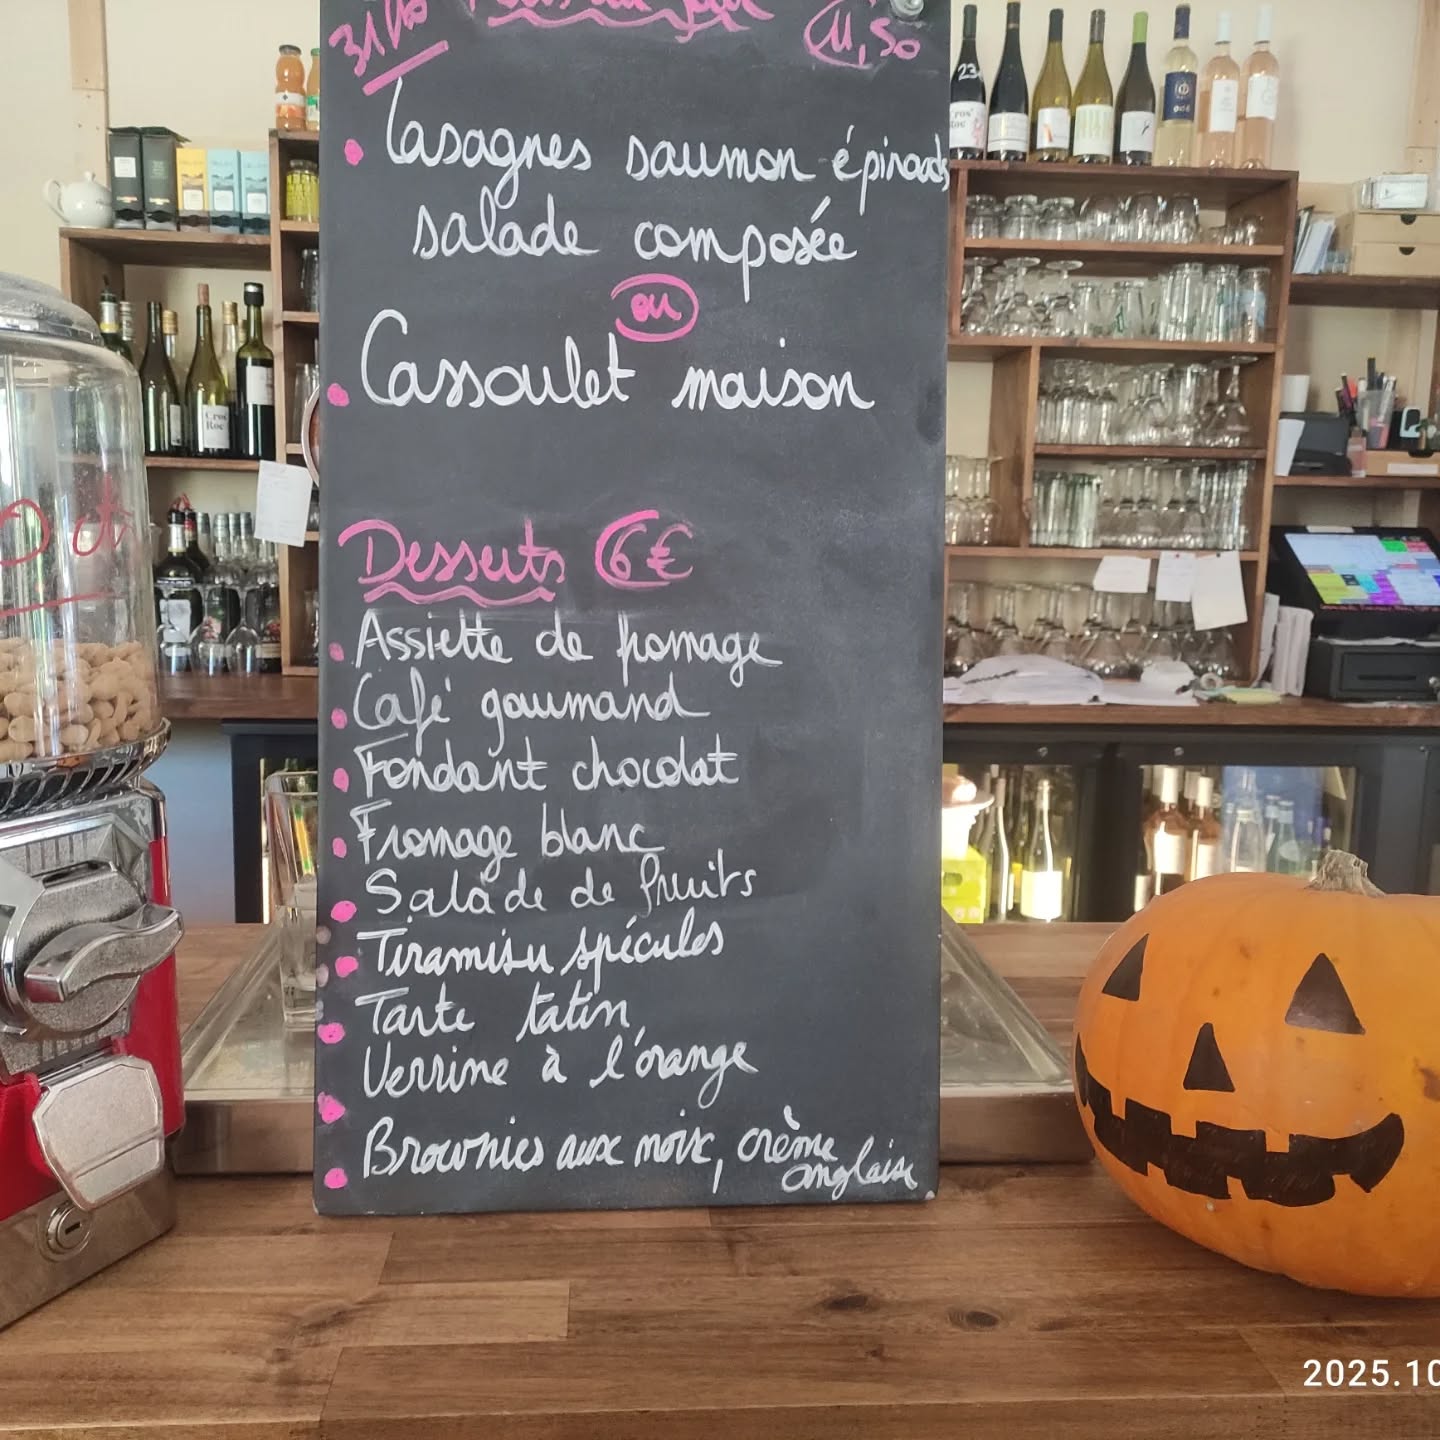 31/10 Plats du jour 11,50
Lasagnes saumon épinards
salade composée
ou
Cassoulet maison
Desserts 6€
Assiette de fromage
Café gourmand
Fondant chocolat
Fromage blanc
Salade de fruits
Tiramisu spéculos
Tarte tatin
Verrine à l'orange
Brownies aux noix, crème
anglaise
Cros
Roc
23
2025.10